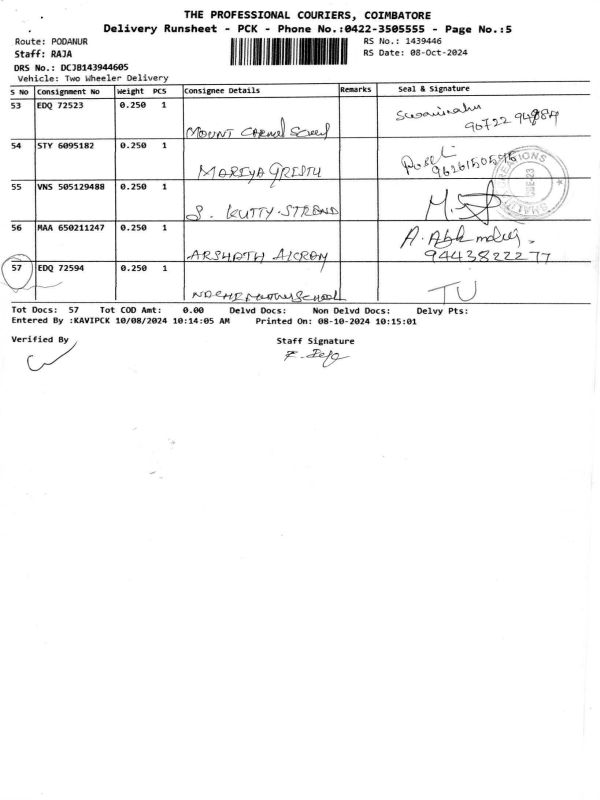 THE PROFESSIONAL COURIERS, COIMBATORE
Delivery Runsheet - PCK - Phone No.:0422-3505555 - Page No.:5
Route: PODANUR RS No.: 1439446
Staff: RAJA RS Date: 08-Oct-2024
DRS No.: DCJB143944605
Vehicle: Two Wheeler Delivery
S No Consignment No Weight PCS Consignee Details Remarks Seal & Signature
53 EDQ 72523 0.250 1
MOUNT CARMEL
54 STY 6095182 0.250 1
MARIYA
55 VNS 505129488 0.250 1
S. KUTTY
56 MAA 650211247 0.250 1
ARSHATH 9443822277
57 EDQ 72594 0.250 1
School TU
Tot Docs: 57 Tot COD Amt: 0.00 Delvd Docs: Non Delvd Docs: Delvy Pts:
Entered By :KAVIPCK 10/08/2024 10:14:05 AM Printed On: 08-10-2024 10:15:01
Verified By Staff Signature